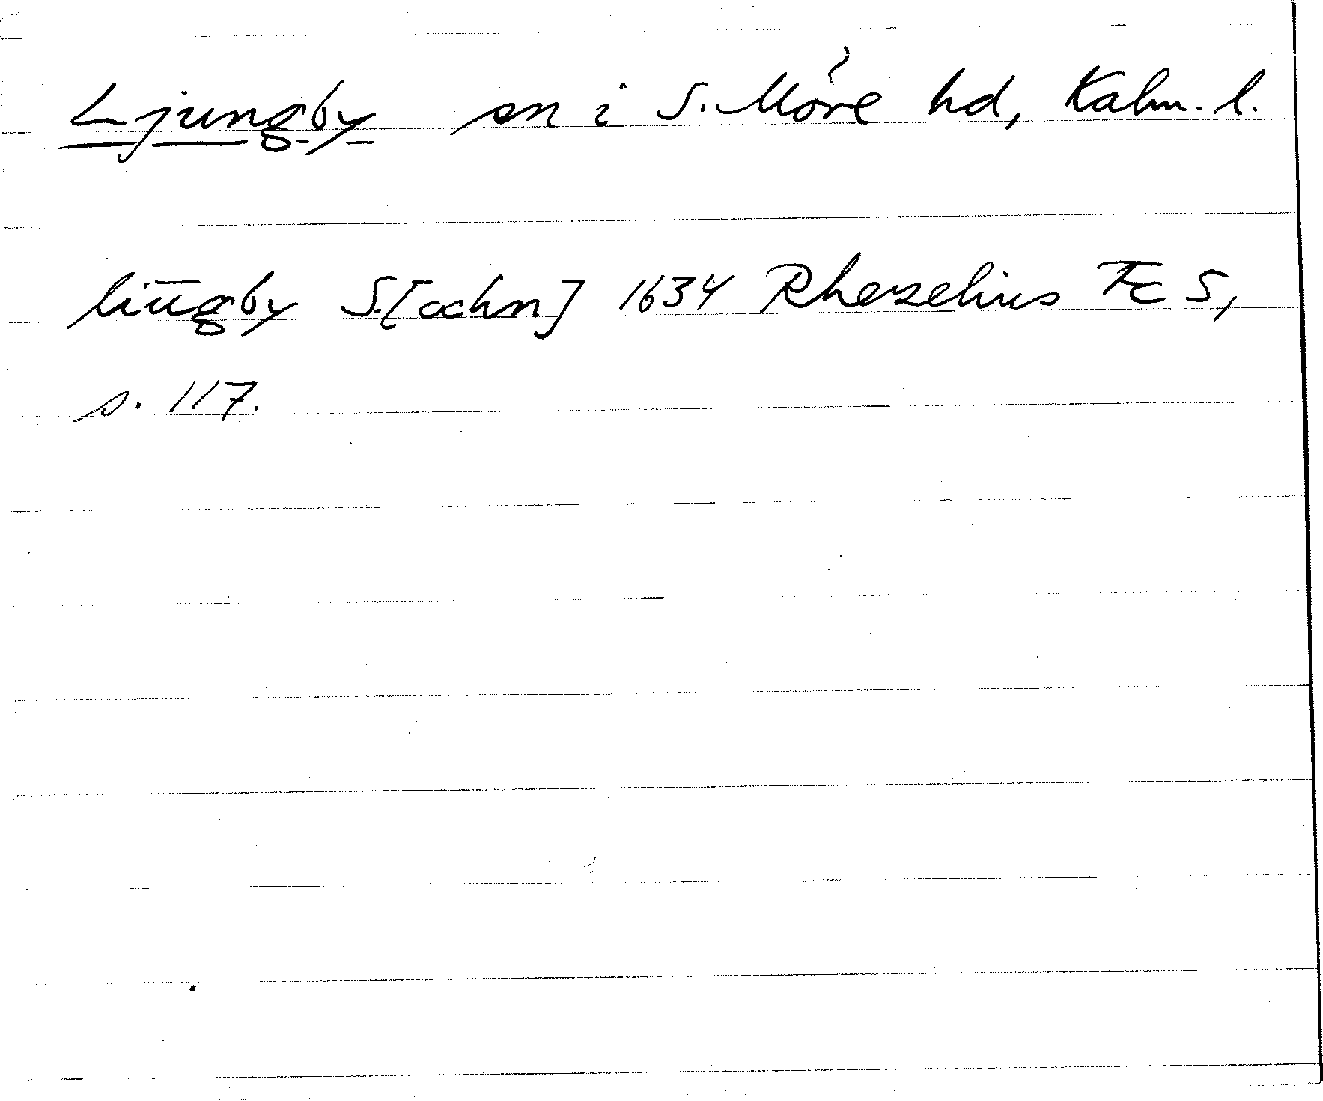 Ljungby sn i S. Möre hd, Kalm. l.
liūgby S.[ochn] 1634 Rhezelius Fc 5,
s. 117.